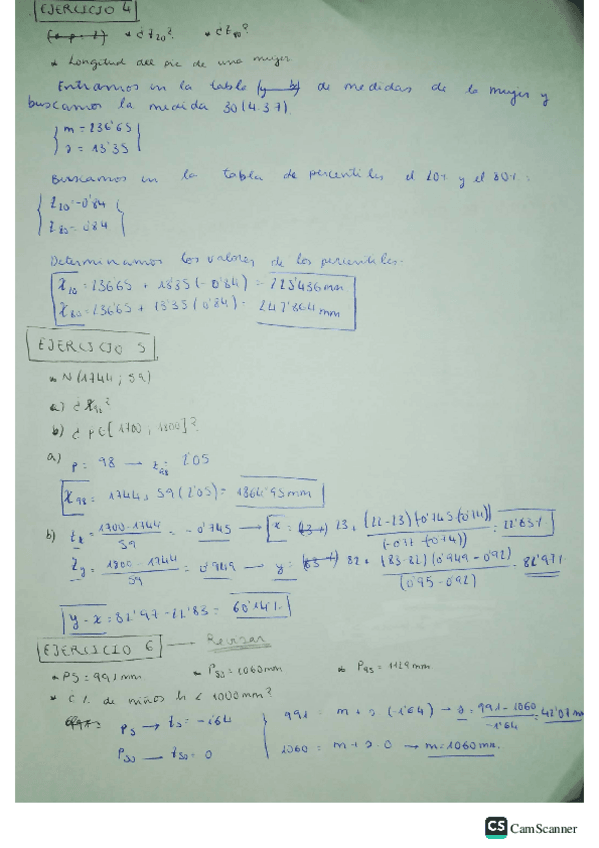 EJERCICIO 4
* ¿ Z20? * ¿ Z80?
* Longitud del pie de una mujer
Entramos en la tabla de medidas de la mujer y
buscamos la medida 30 (4.37)
m = 236'65
s = 13'35
Buscamos en la tabla de percentiles el 20% y el 80%:
Z20 = -0'84
Z80 = 0'84
Determinamos los valores de los percentiles.
X20 = 236'65 + 13'35 (-0'84) = 225'436 mm
X80 = 236'65 + 13'35 (0'84) = 247'864 mm
EJERCICIO 5
* N (1744 ; 59)
a) ¿ X98?
b) ¿ p € [1700, 1800]?
a) p = 98 → Z98 = 2'05
X98 = 1744 + 59 (2'05) = 1864'95 mm
b) Zx = 1700-1744 / 59 = -0'745 → x = 23 +
Zy = 1800-1744 / 59 = 0'949 → y = 82 + (83-82)(0'949-0'92) / (0'95-0'92) = 82'97%
y - x = 82'97 - 22'83 = 60'14%
EJERCICIO 6 → Revisar
* P5 = 991 mm * P50 = 1060 mm * P95 = 1129 mm
* ¿% de niños h < 1000 mm?
P5 → Z5 = -1'64 991 = m + s (-1'64) → s = 991-1060 / -1'64 = 42'07 mm
P50 → Z50 = 0 1060 = m + s · 0 → m = 1060 mm.
CS CamScanner